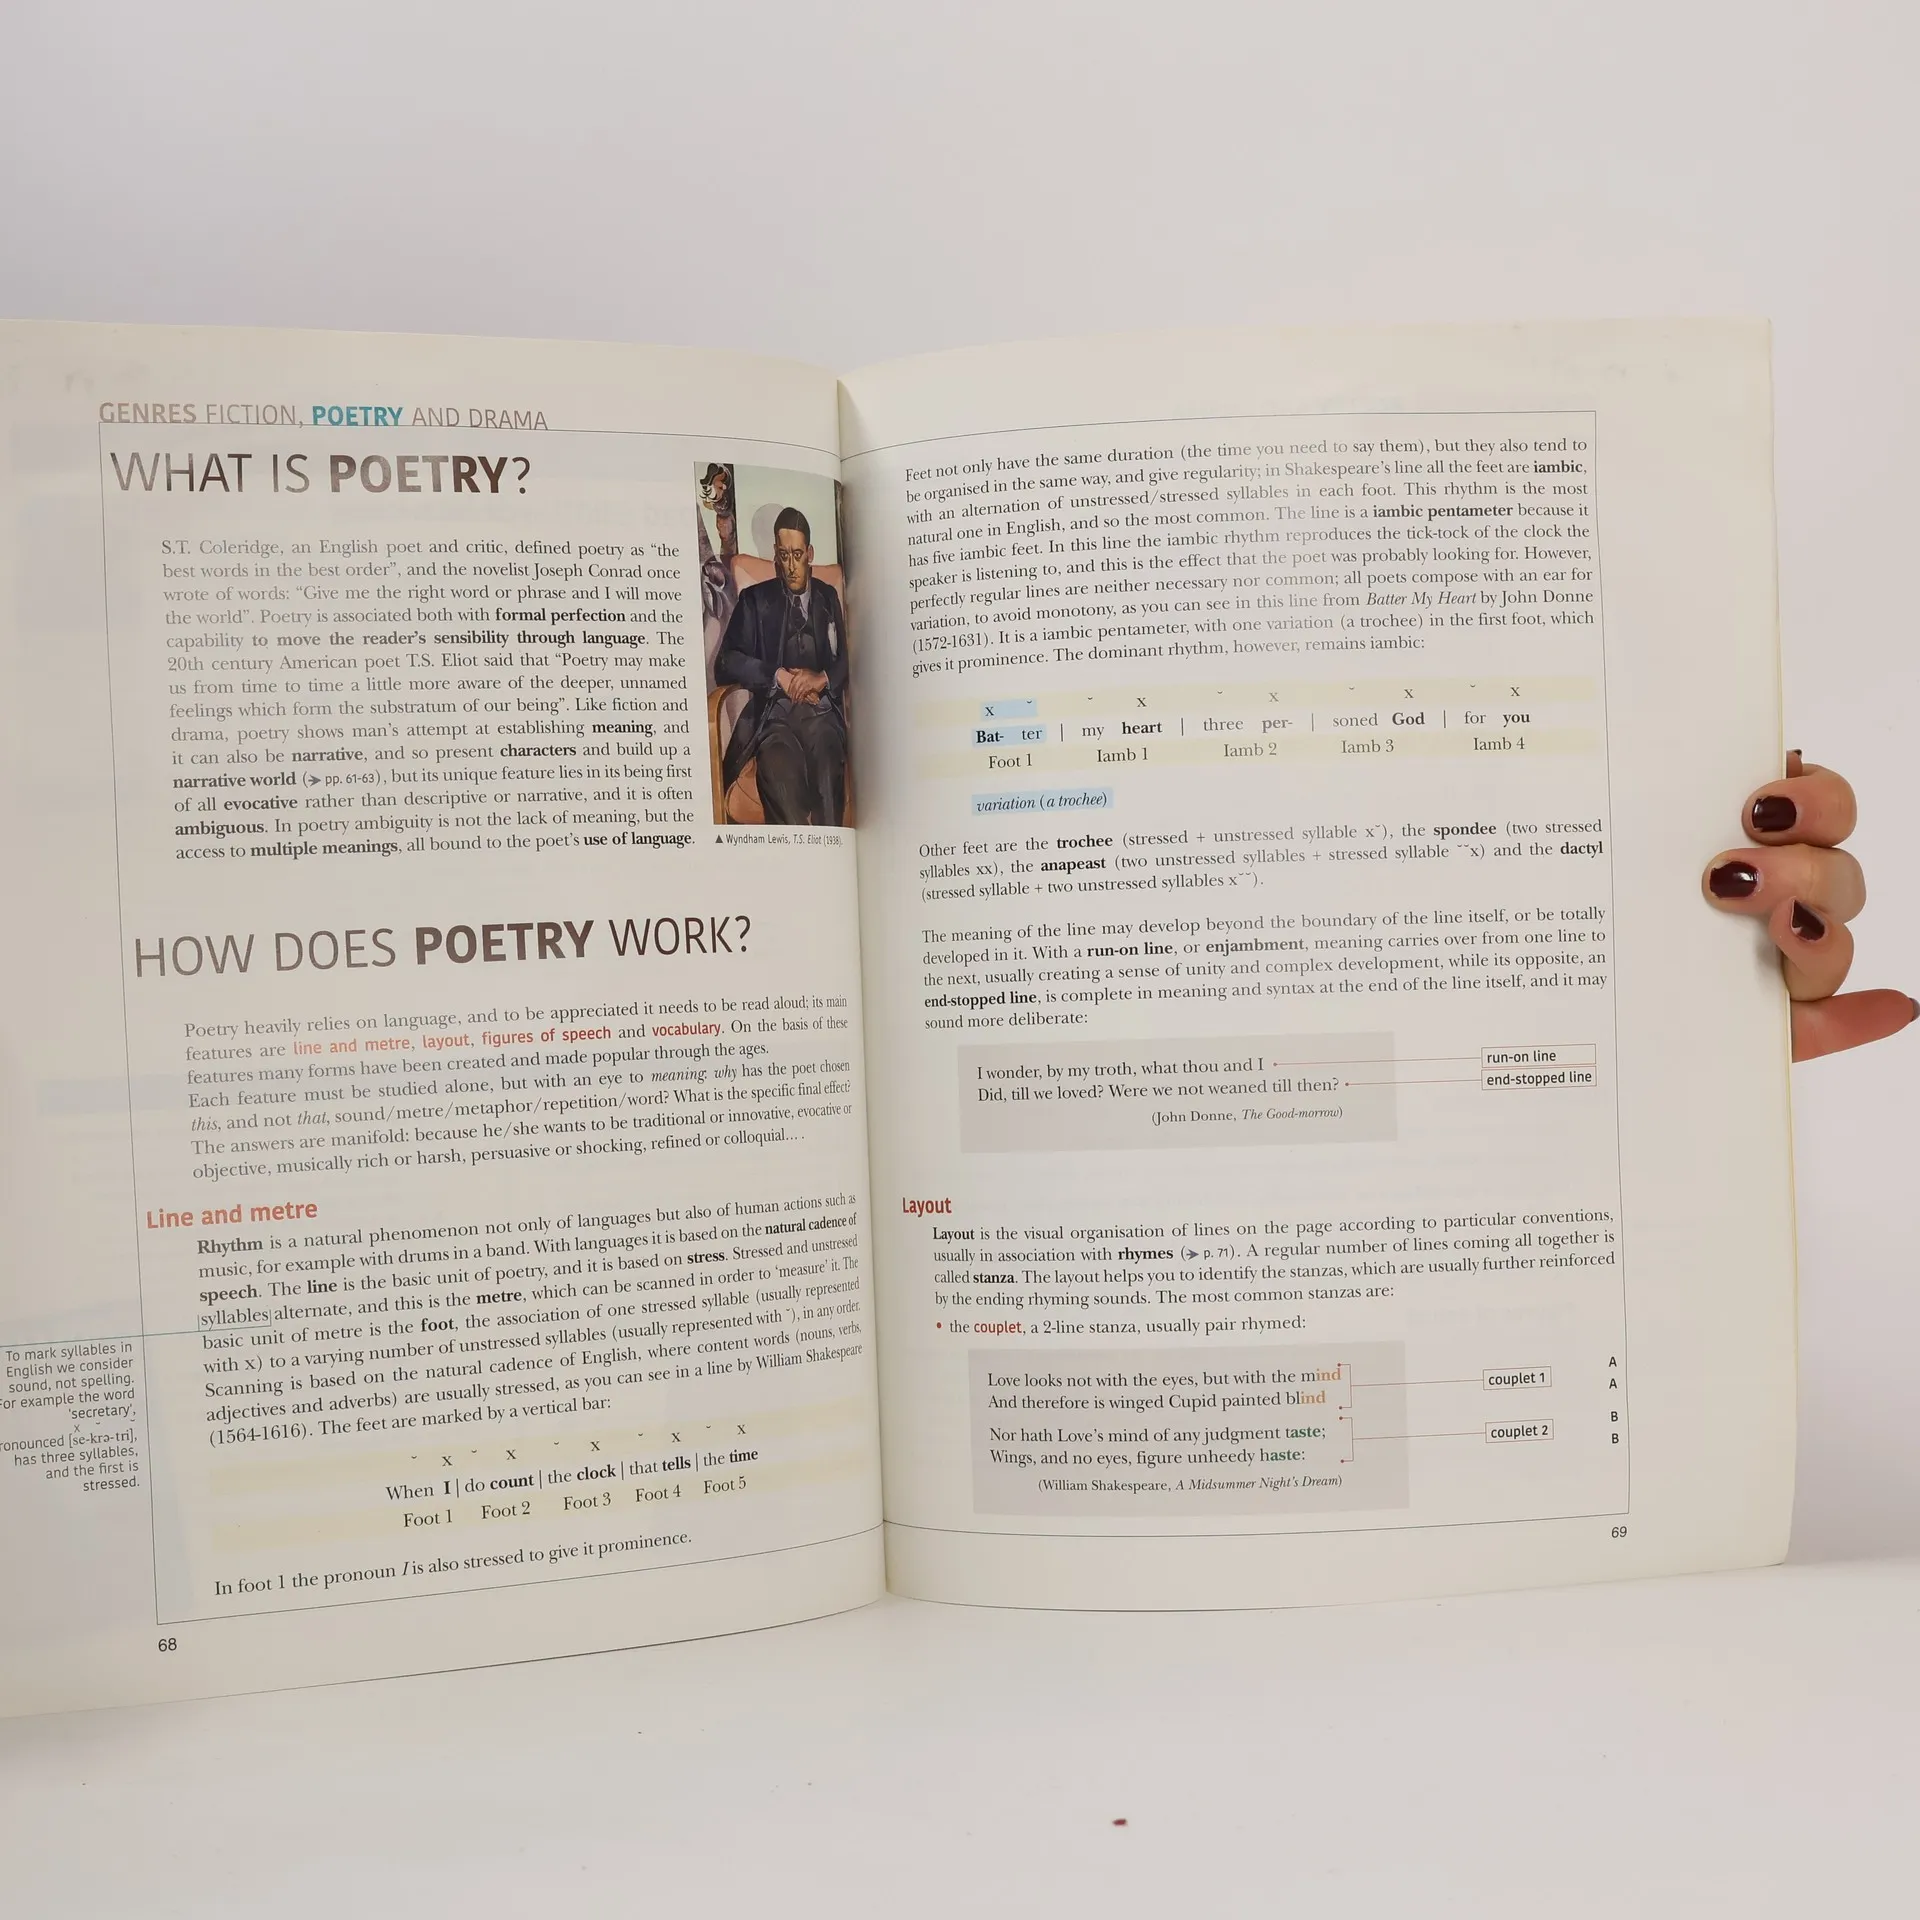 GENRES FICTION, POETRY AND DRAMA
WHAT IS POETRY?
S.T. Coleridge, an English poet and critic, defined poetry as “the
best words in the best order”, and the novelist Joseph Conrad once
wrote of words: “Give me the right word or phrase and I will move
the world”. Poetry is associated both with formal perfection and the
capability to move the reader’s sensibility through language. The
20th century American poet T.S. Eliot said that “Poetry may make
us from time to time a little more aware of the deeper, unnamed
feelings which form the substratum of our being”. Like fiction and
drama, poetry shows man’s attempt at establishing meaning, and
it can also be narrative, and so present characters and build up a
narrative world (➤ pp. 61-63), but its unique feature lies in its being first
of all evocative rather than descriptive or narrative, and it is often
ambiguous. In poetry ambiguity is not the lack of meaning, but the
access to multiple meanings, all bound to the poet’s use of language.
▲ Wyndham Lewis, T.S. Eliot (1938).
HOW DOES POETRY WORK?
Poetry heavily relies on language, and to be appreciated it needs to be read aloud; its main
features are line and metre, layout, figures of speech and vocabulary. On the basis of these
features many forms have been created and made popular through the ages.
Each feature must be studied alone, but with an eye to meaning: why has the poet chosen
this, and not that, sound/metre/metaphor/repetition/word? What is the specific final effect?
The answers are manifold: because he/she wants to be traditional or innovative, evocative or
objective, musically rich or harsh, persuasive or shocking, refined or colloquial... .
Line and metre
Rhythm is a natural phenomenon not only of languages but also of human actions such as
music, for example with drums in a band. With languages it is based on the natural cadence of
speech. The line is the basic unit of poetry, and it is based on stress. Stressed and unstressed
syllables alternate, and this is the metre, which can be scanned in order to ‘measure’ it. The
basic unit of metre is the foot, the association of one stressed syllable (usually represented
with x) to a varying number of unstressed syllables (usually represented with ˘), in any order.
Scanning is based on the natural cadence of English, where content words (nouns, verbs,
adjectives and adverbs) are usually stressed, as you can see in a line by William Shakespeare
(1564-1616). The feet are marked by a vertical bar:
To mark syllables in
English we consider
sound, not spelling.
For example the word
‘secretary’,
x ˘ ˘
pronounced [se-krə-tri],
has three syllables,
and the first is
stressed.
˘ x ˘ x ˘ x ˘ x ˘ x
When I | do count | the clock | that tells | the time
Foot 1 Foot 2 Foot 3 Foot 4 Foot 5
In foot 1 the pronoun I is also stressed to give it prominence.
68
Feet not only have the same duration (the time you need to say them), but they also tend to
be organised in the same way, and give regularity; in Shakespeare’s line all the feet are iambic,
with an alternation of unstressed/stressed syllables in each foot. This rhythm is the most
natural one in English, and so the most common. The line is a iambic pentameter because it
has five iambic feet. In this line the iambic rhythm reproduces the tick-tock of the clock the
speaker is listening to, and this is the effect that the poet was probably looking for. However,
perfectly regular lines are neither necessary nor common; all poets compose with an ear for
variation, to avoid monotony, as you can see in this line from Batter My Heart by John Donne
(1572-1631). It is a iambic pentameter, with one variation (a trochee) in the first foot, which
gives it prominence. The dominant rhythm, however, remains iambic:
x ˘ ˘ x ˘ x ˘ x ˘ x
Bat- ter | my heart | three per- | soned God | for you
Foot 1 Iamb 1 Iamb 2 Iamb 3 Iamb 4
variation (a trochee)
Other feet are the trochee (stressed + unstressed syllable x˘), the spondee (two stressed
syllables xx), the anapeast (two unstressed syllables + stressed syllable ˘˘x) and the dactyl
(stressed syllable + two unstressed syllables x˘˘).
The meaning of the line may develop beyond the boundary of the line itself, or be totally
developed in it. With a run-on line, or enjambment, meaning carries over from one line to
the next, usually creating a sense of unity and complex development, while its opposite, an
end-stopped line, is complete in meaning and syntax at the end of the line itself, and it may
sound more deliberate:
I wonder, by my troth, what thou and I run-on line
Did, till we loved? Were we not weaned till then? end-stopped line
(John Donne, The Good-morrow)
Layout
Layout is the visual organisation of lines on the page according to particular conventions,
usually in association with rhymes (➤ p. 71). A regular number of lines coming all together is
called stanza. The layout helps you to identify the stanzas, which are usually further reinforced
by the ending rhyming sounds. The most common stanzas are:
• the couplet, a 2-line stanza, usually pair rhymed:
Love looks not with the eyes, but with the mind A
couplet 1
And therefore is winged Cupid painted blind A
Nor hath Love’s mind of any judgment taste; B
couplet 2
Wings, and no eyes, figure unheedy haste: B
(William Shakespeare, A Midsummer Night’s Dream)
69